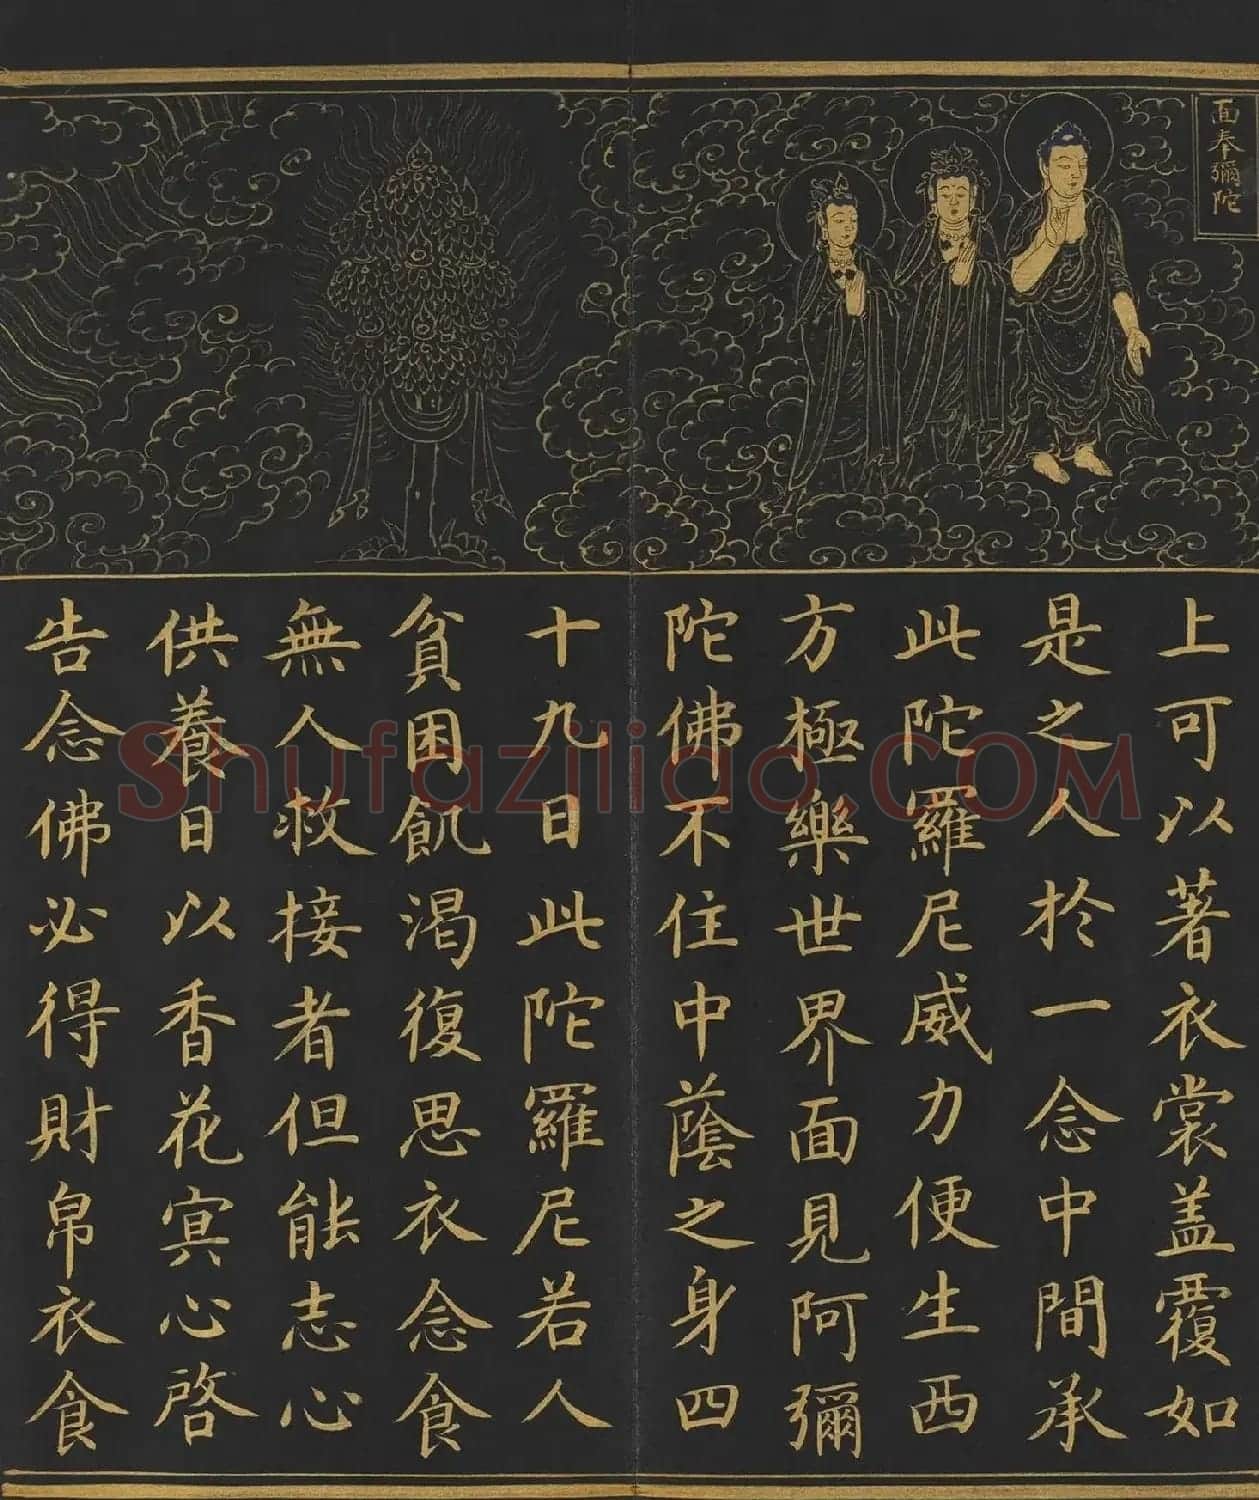 面奉彌陀
上可以著衣裳盖覆如
是之人於一念中間承
此陀羅尼威力便生西
方極樂世界面見阿彌
陀佛不住中蔭之身四
十九日此陀羅尼若人
貧困飢渴復思衣念食
無人救接者但能志心
供養日以香花冥心啓
告念佛必得財帛衣食
Shufaziliao.COM